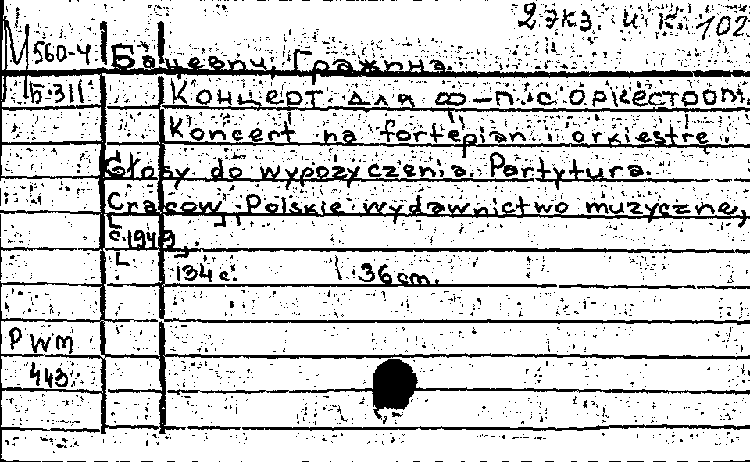 2 экз. и к. 102
М 560-4 Бацевич, Гражина
Б-311 Концерт для ф-п. с оркестром.
Koncert na fortepian i orkiestrę.
Głosy do wypożyczenia. Partytura.
Cracow, Polskie wydawnictwo muzyczne,
[c 1949].
134 c. 36 cm.
PWM
443